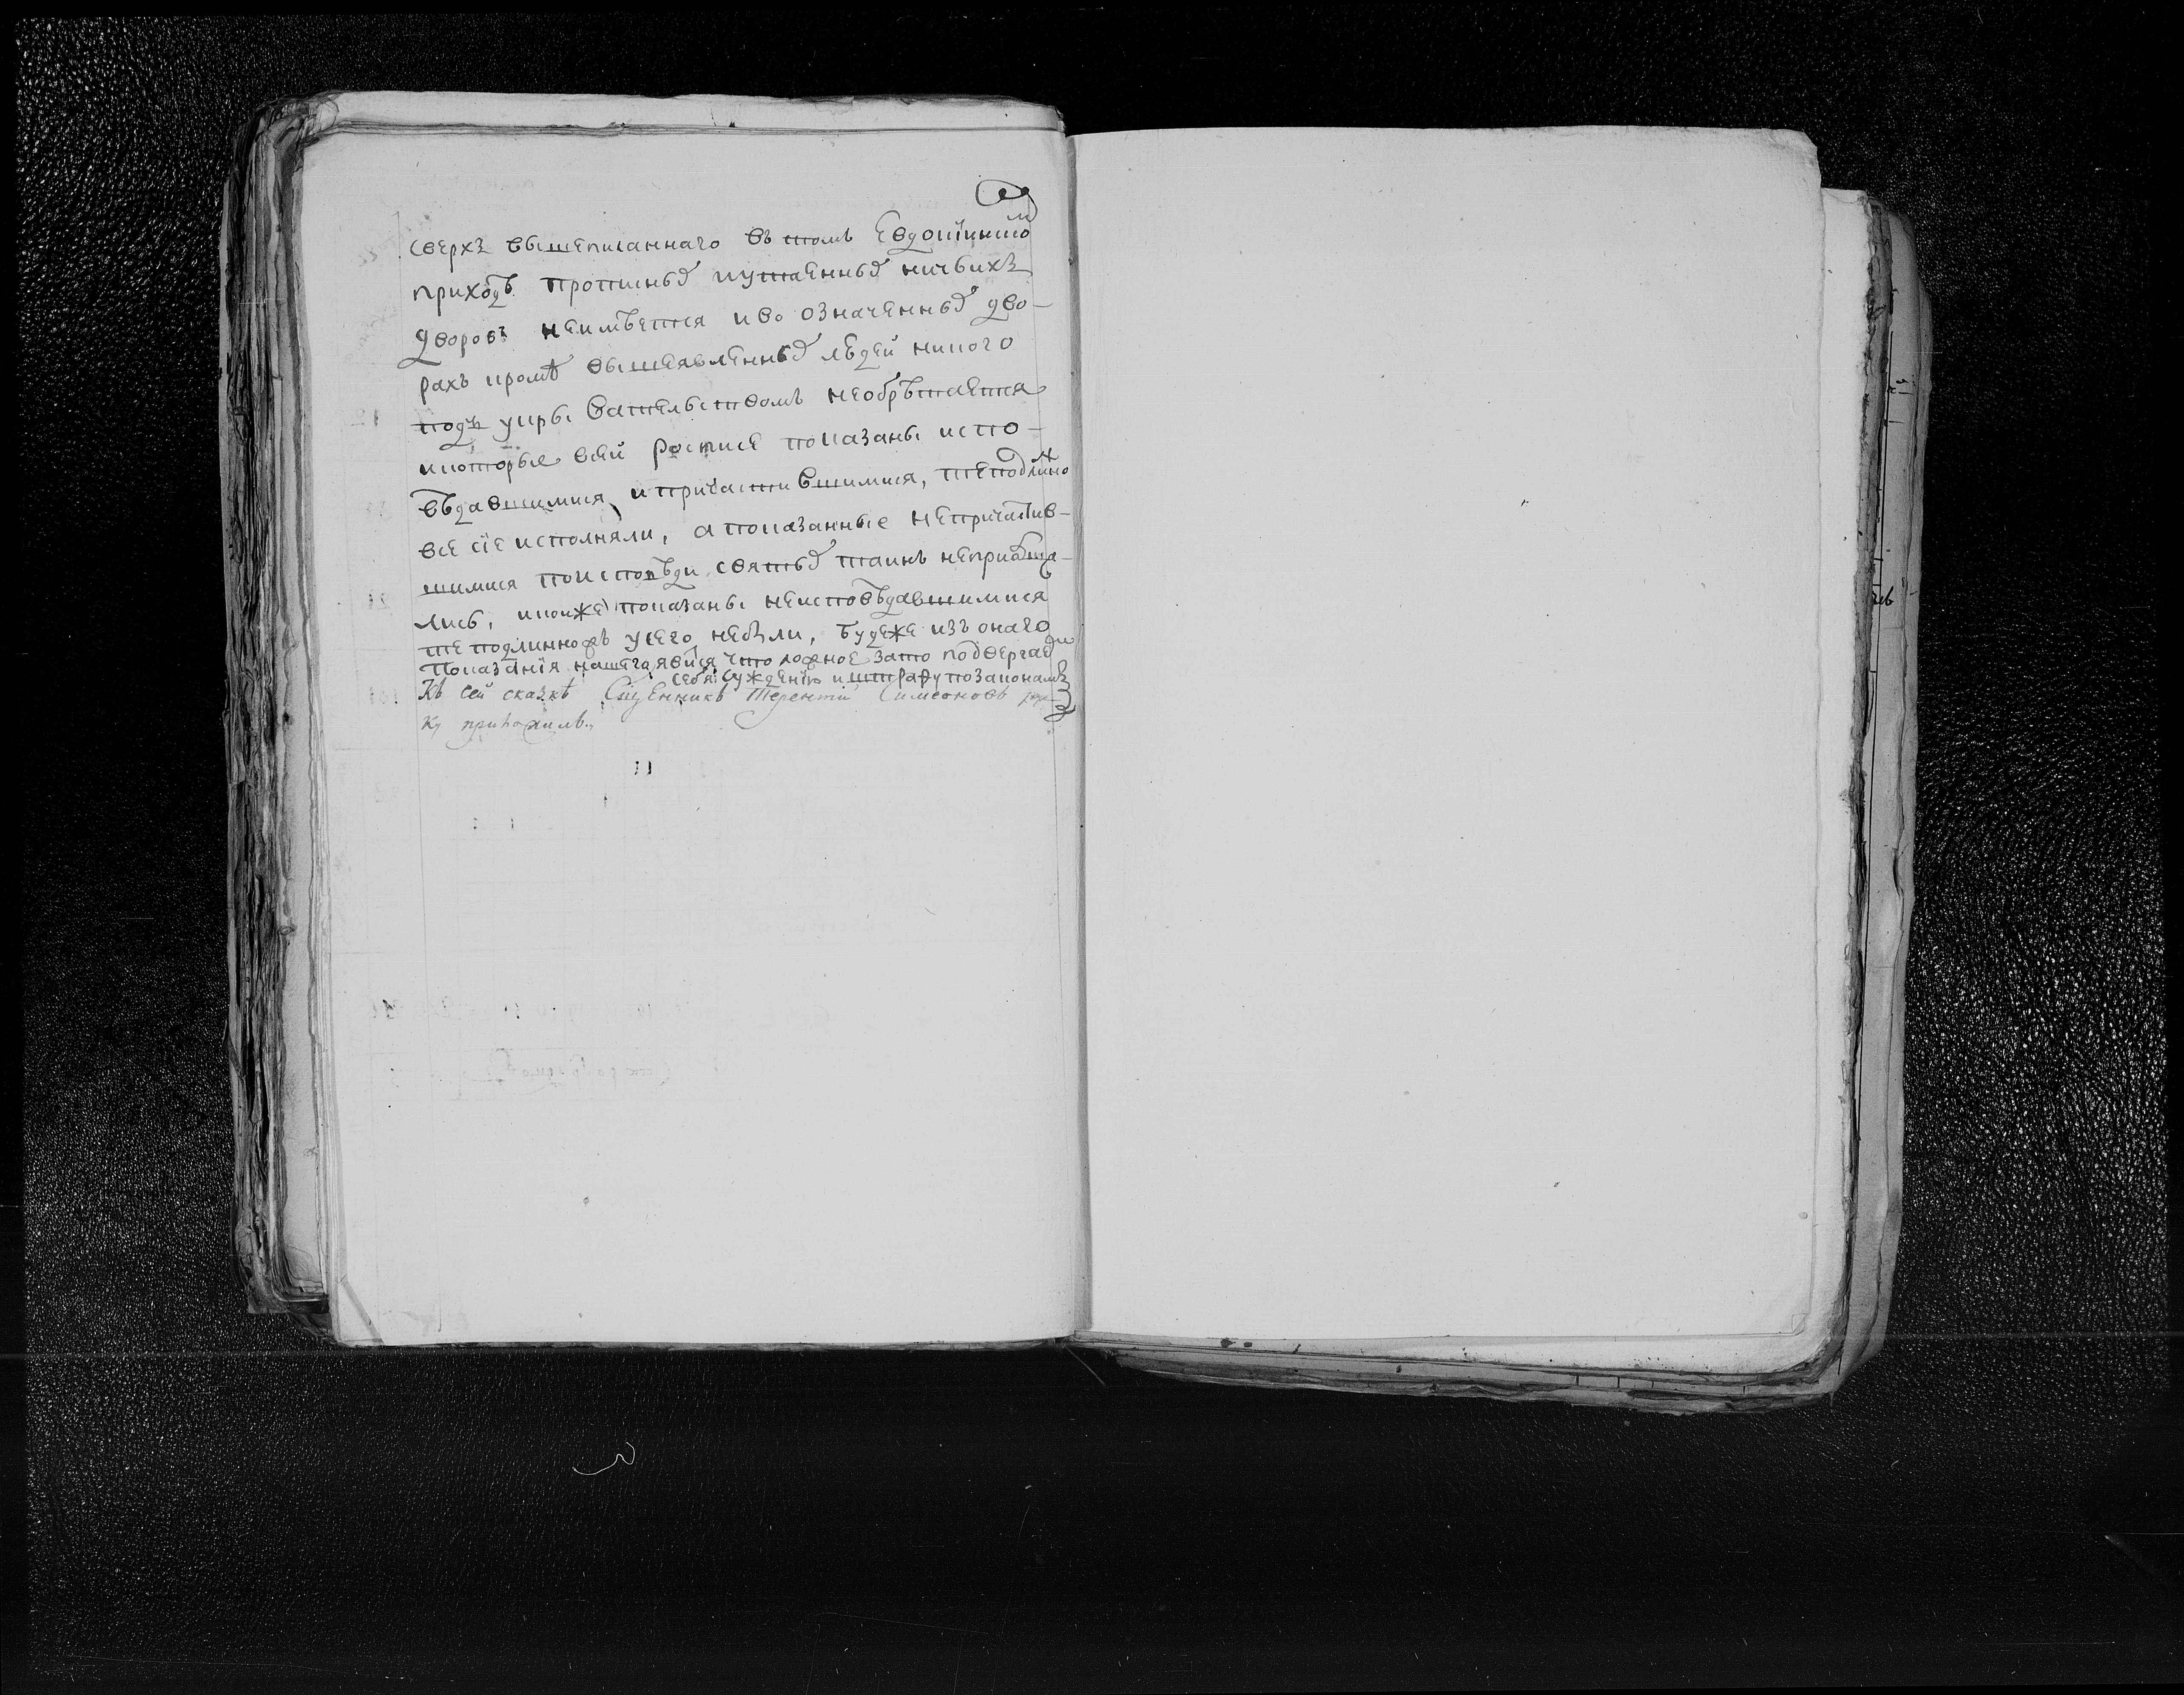 сверхъ вышеписаннаго въ томъ Евдокиинском
приходѣ протчихъ иутаенныхъ ничьихъ
дворовъ неимѣется иво означенныхъ дво-
рахъ кромѣ вышеявленныхъ людей никого
подъ укрывательствомъ необрѣтается
икоторые всей росписе показаны испо-
вѣдавшимися ипричастившимися, теподлинно
все сїе исполняли, апоказанные непричастив-
шимися поисповѣди святыхъ таинъ неприобща-
лись, икоиже показаны неисповѣдавшимися
теподлинножъ усего небыли, будеже изъ онаго
показанїя нашего явится что ложное зато подвергаем
себя суждению иштрафу позаконамъ
Къ сей сказкѣ Сщенникъ Терентїй Симеоновъ ру
ку приложилъ.